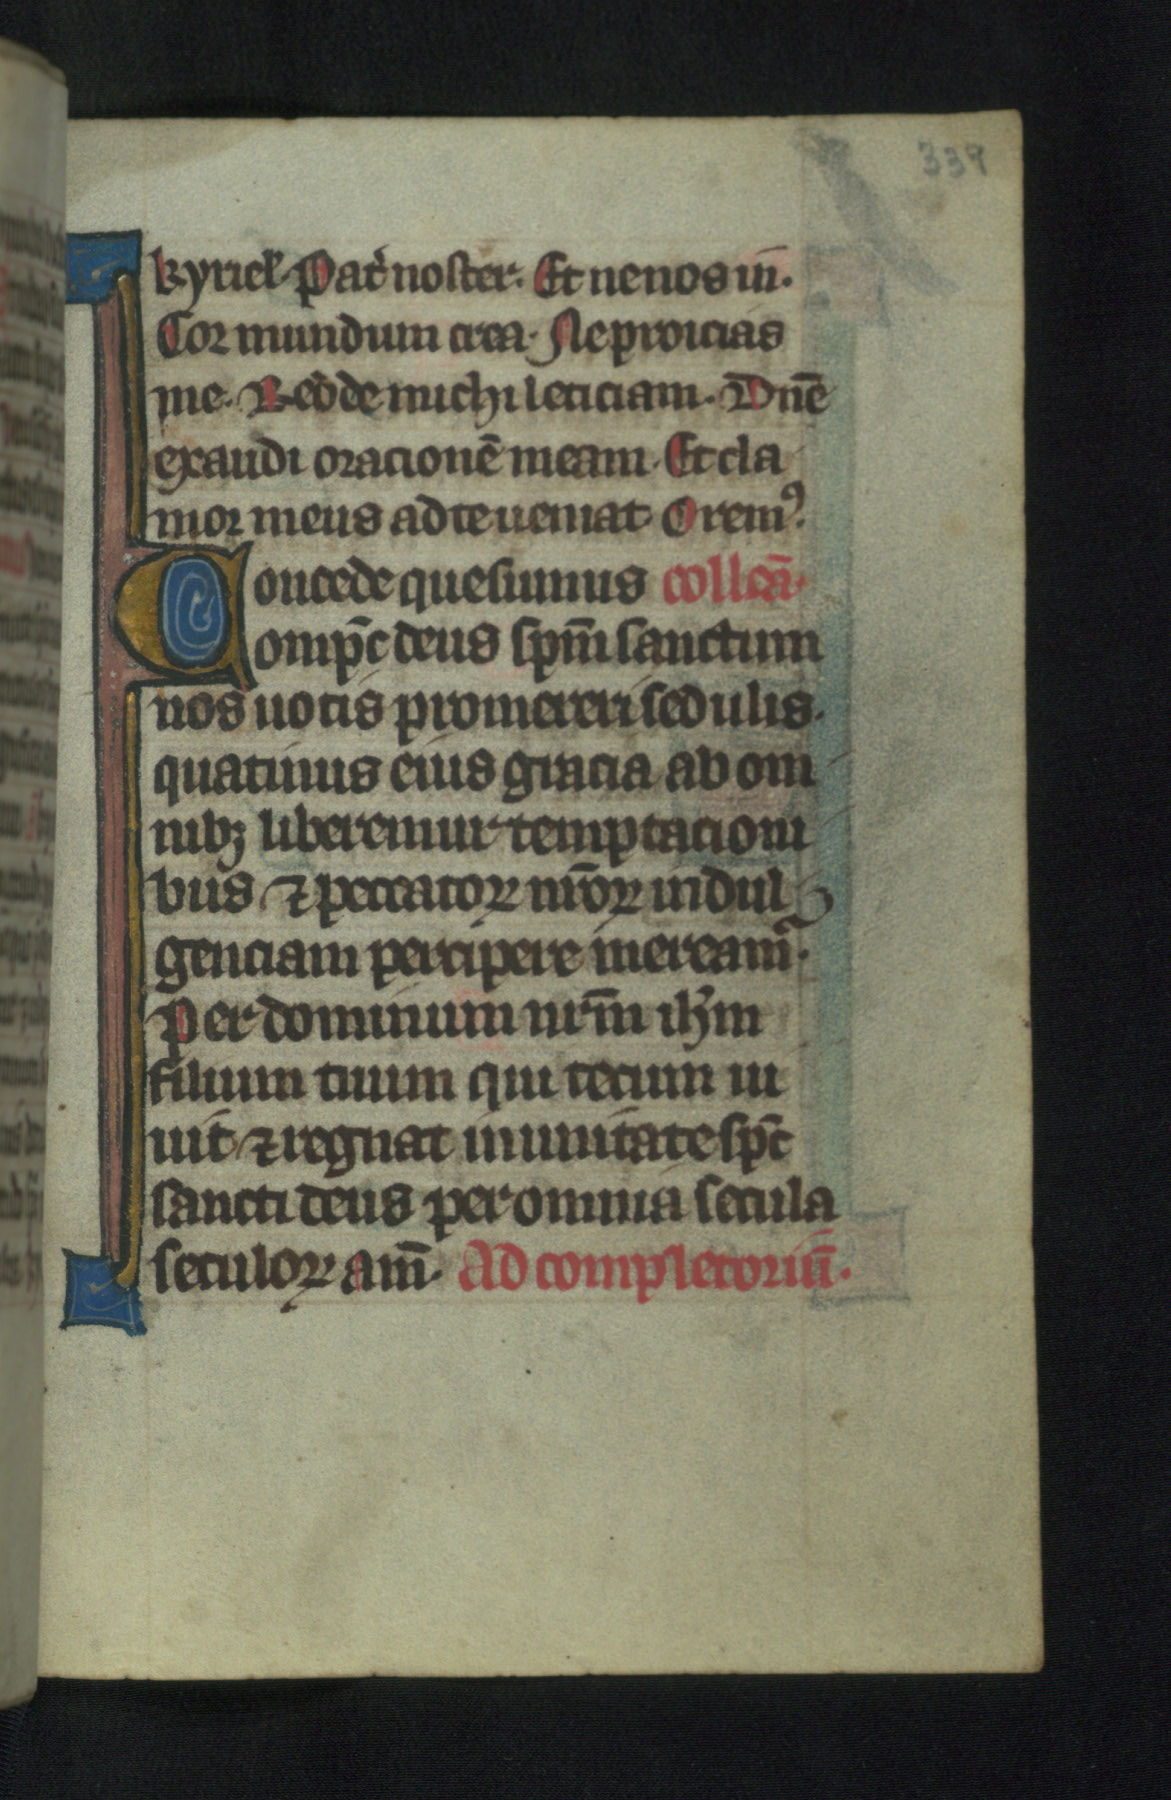 339
kyriel. Pat̉ noster. Et ne nos in.
Cor mundum crea. Ne proicias
me. Redde michi leticiam. Dnē
exaudi oracionē meam. Et cla
mor meus ad te ueniat. Oremꝰ.
Concede quesumus collcā.
omp̄c deus sp̄m sanctum
nos uotis promereri sedulis.
quatinus eius gracia ab om
nibꝫ liberemur temptacioni
bus ⁊ peccatoꝝ nr̄oꝝ indul
genciam percipere mereamr̃.
Per dominum nr̄m ihm̄
filium tuum qui tecum ui
uit ⁊ regnat in unitate sp̄c
sancti deus per omnia secula
seculoꝝ am̄. Ad completoriū.